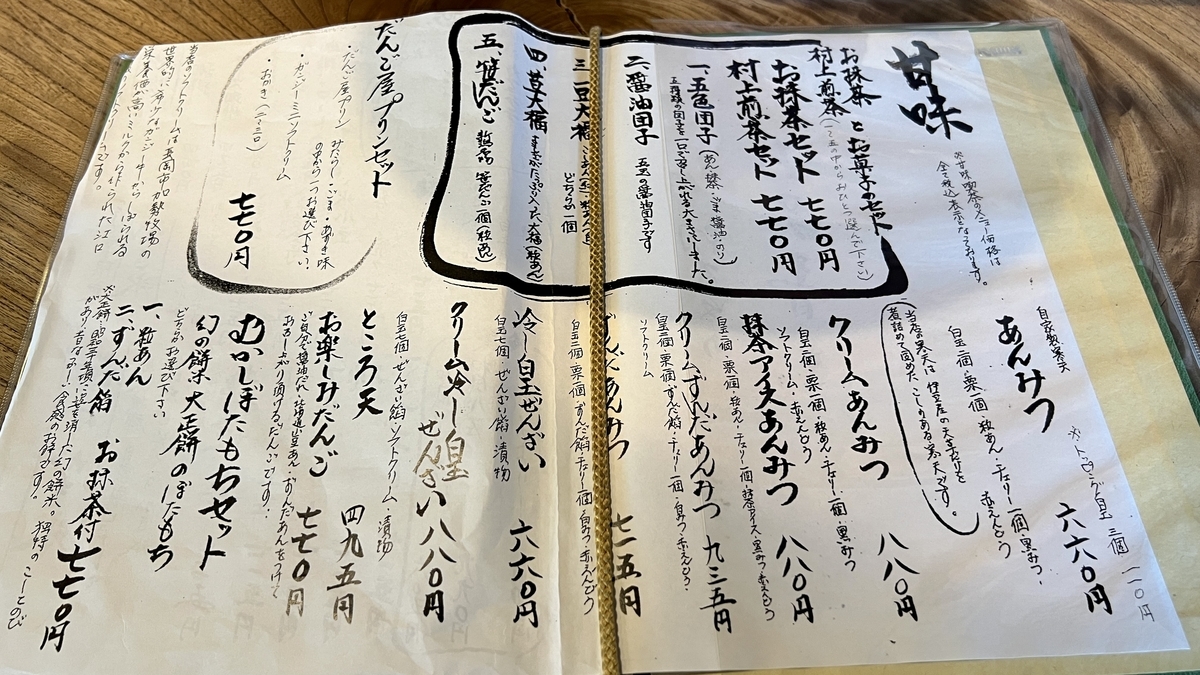 甘味
※甘味喫茶のメニュー価格は
全て税込表示となっております。
お抹茶
村上煎茶 とお菓子のセット
(一～五の中からおひとつ選んで下さい)
お抹茶セット 七七〇円
村上煎茶セット 七七〇円
一、五色団子(あん・抹茶・ごま・醤油・のり)
二、醤油団子 五玉の醤油団子です
三、豆大福
どちらか一個
四、草大福 大福(粒あん)
五、笹だんご 越後笹だんご一個(粒あん)
だんご屋プリンセット
・だんご屋プリン みたらし・ごま・あずき味
の中から一つお選び下さい。
・ガンジーミニソフトクリーム
・おかき(二、三口)
七七〇円
当店のソフトクリームは五頭山加勢牧場の
世界的に希少なガンジー牛からしぼられる
栄養価が高いミルクから作られた
※トッピング白玉 三個 一一〇円
自家製寒天
あんみつ 六六〇円
白玉二個・栗一個・粒あん・チェリー一個・黒みつ・
赤えんどう
当店の寒天は伊豆産の天草だけを
煮詰めて固めた、こしのある寒天です。
クリームあんみつ 八八〇円
白玉二個・栗一個・粒あん・チェリー一個・黒みつ
ソフトクリーム・赤えんどう
抹茶アイスあんみつ 八八〇円
白玉二個・栗一個・粒あん・チェリー一個・抹茶アイス・黒みつ・赤えんどう
クリームずんだあんみつ 九三五円
白玉二個・栗一個・ずんだ餡・チェリー一個・白みつ・赤えんどう・
ソフトクリーム
ずんだあんみつ 七一五円
白玉二個・栗一個・ずんだ餡・チェリー一個・白みつ・赤えんどう
冷し白玉ぜんざい 六六〇円
白玉七個・ぜんざい餡・漬物
クリーム冷し白玉
ぜんざい 八八〇円
白玉七個・ぜんざい餡・ソフトクリーム・漬物
ところ天 四九五円
お楽しみだんご 七七〇円
ご自分で醤油だれ・北海道小豆あん・ずんだあんをつけて
お召し上がり頂けるだんごです。
むかしぼたもちセット
幻の餅米 大正餅のぼたもち
どちらかお選び下さい。
一、粒あん
二、ずんだ餡 お抹茶付 七七〇円
※大正餅・昭和三十年頃に姿を消した幻の餅米。独特のこしとのび
があり昔なつかしい食感のお餅です。